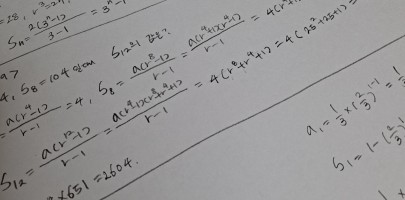 Sₙ = 2(3ⁿ-1) / 3-1 = 3ⁿ
4, S₈ = 104 일때 S₁₂의 값은?
= a(r⁴-1) / r-1 = 4, S₈ = a(r⁸-1) / r-1 = a(r⁴+1)(r⁴-1) / r-1 = 4(r⁴
S₁₂ = a(r¹²-1) / r-1 = a(r⁴-1)(r⁸+r⁴+1) / r-1 = 4(r⁸+r⁴+1) = 4(25²+25+1) =
×651 = 2604.
a₁ = 1/3 × (2/3)¹⁻¹ = 1
S₁ = 1-(2/3)